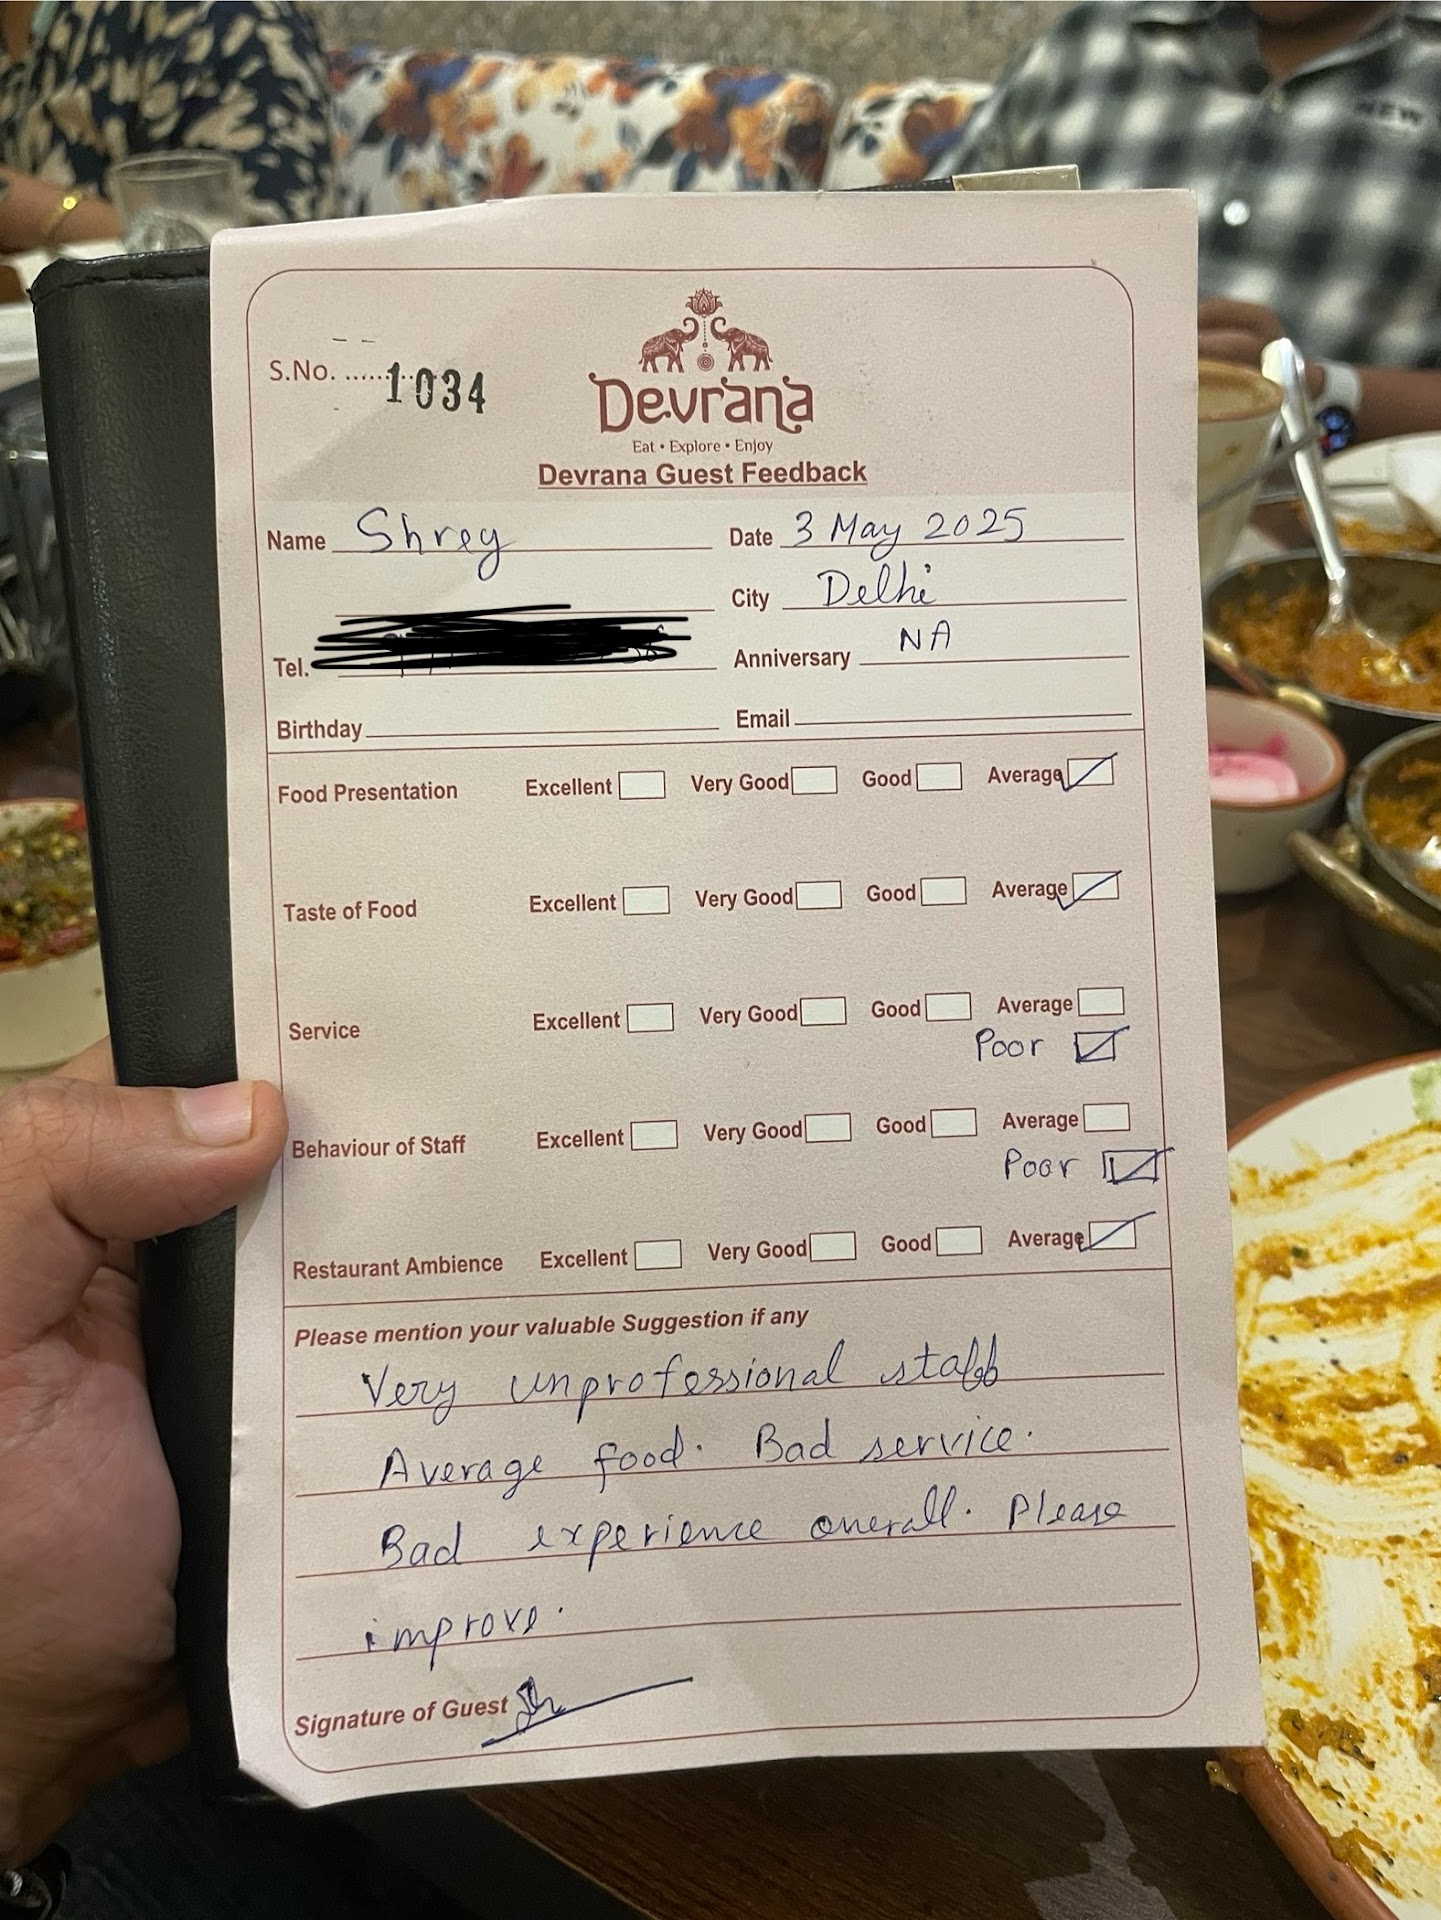 NEW
S.No. ........ 1034
Devrana
Eat • Explore • Enjoy
Devrana Guest Feedback
Name Shrey Date 3 May 2025
City Delhi
Tel. Anniversary NA
Birthday Email
Food Presentation Excellent Very Good Good Average
Taste of Food Excellent Very Good Good Average
Service Excellent Very Good Good Average
Poor
Behaviour of Staff Excellent Very Good Good Average
Poor
Restaurant Ambience Excellent Very Good Good Average
Please mention your valuable Suggestion if any
Very unprofessional staff
Average food. Bad service.
Bad experience overall. Please
improve.
Signature of Guest